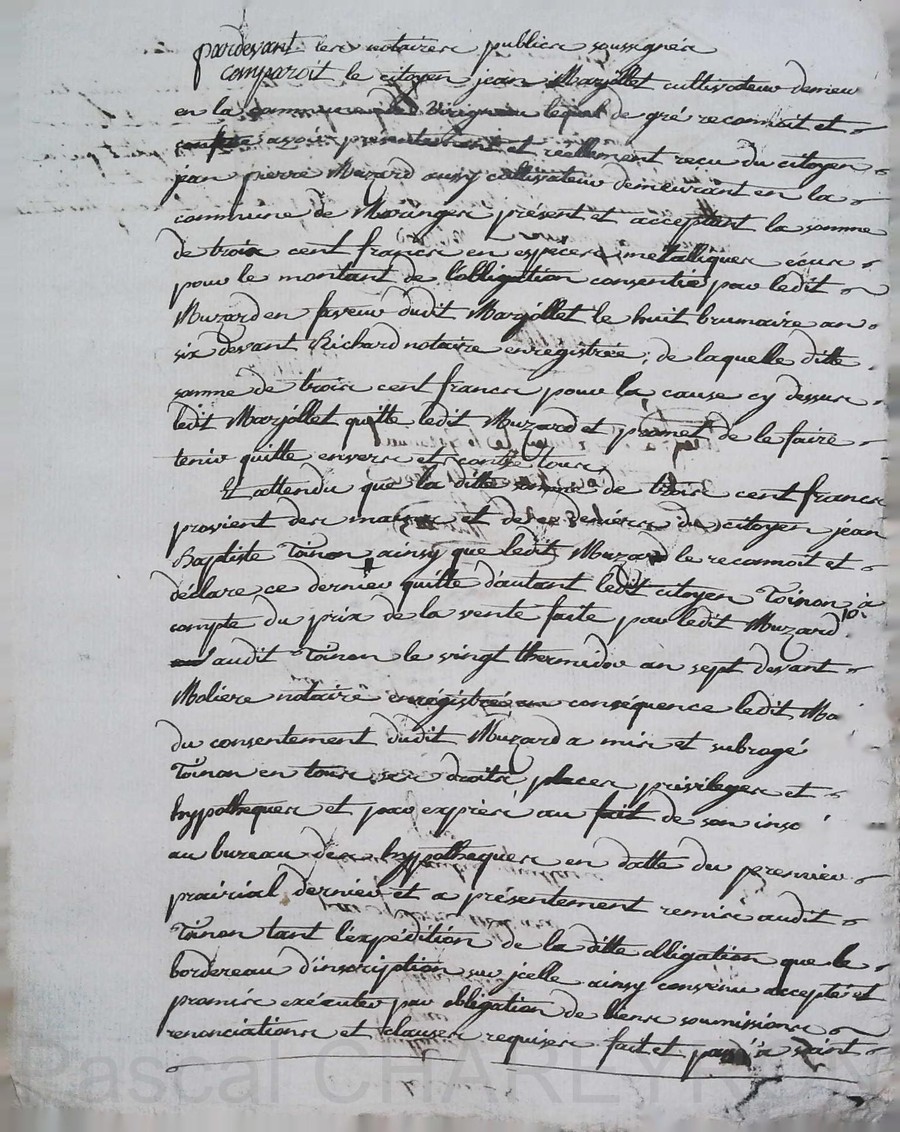 pardevant les notaires publics soussignés
comparoit le citoyen jean Marjollet cultivateur demeu
en la commune de lequel de gré reconnoit et
confesse avoir présentement et réellement recu du citoyen
jean pierre Muzard aussy cultivateur demeurant en la
commune de Maringes présent et acceptant la somme
de trois cent francs en especes métalliques écus
pour le montant de l'obligation consentie par ledit
Muzard en faveur dudit Marjollet le huit brumaire an
six devant Richard notaire enregistrée, de laquelle ditte
somme de trois cent francs pour la cause cy dessus
ledit Marjollet quitte ledit Muzard et promet de le faire
tenir quitte envers et contre tous
Et attendu que la ditte somme de trois cent francs
provient des mains et des deniers du citoyen jean
Baptiste Toinon ainsy que ledit Muzard le reconnoit et
déclare ce dernier quitte d'autant ledit citoyen Toinon à
compte du prix de la vente faite par ledit Muzard
audit Toinon le vingt thermidor an sept devant
Moliere notaire enrégistrée en conséquence ledit Ma
du consentement dudit Muzard a mis et subrogé
Toinon en tous ses droits places privileges et
hypotheques et par exprès au fait de son insc
au bureau des hypotheques en datte du premier
prairial dernier et a présentement remis audit
Toinon tant l'expédition de la ditte obligation que le
bordereau d'inscription sur jcelle ainsy convenu accepté et
promis exécuter par obligation de biens soumissions
renonciations et clauses requises fait et passé à saint
Pascal CHARLEYRON